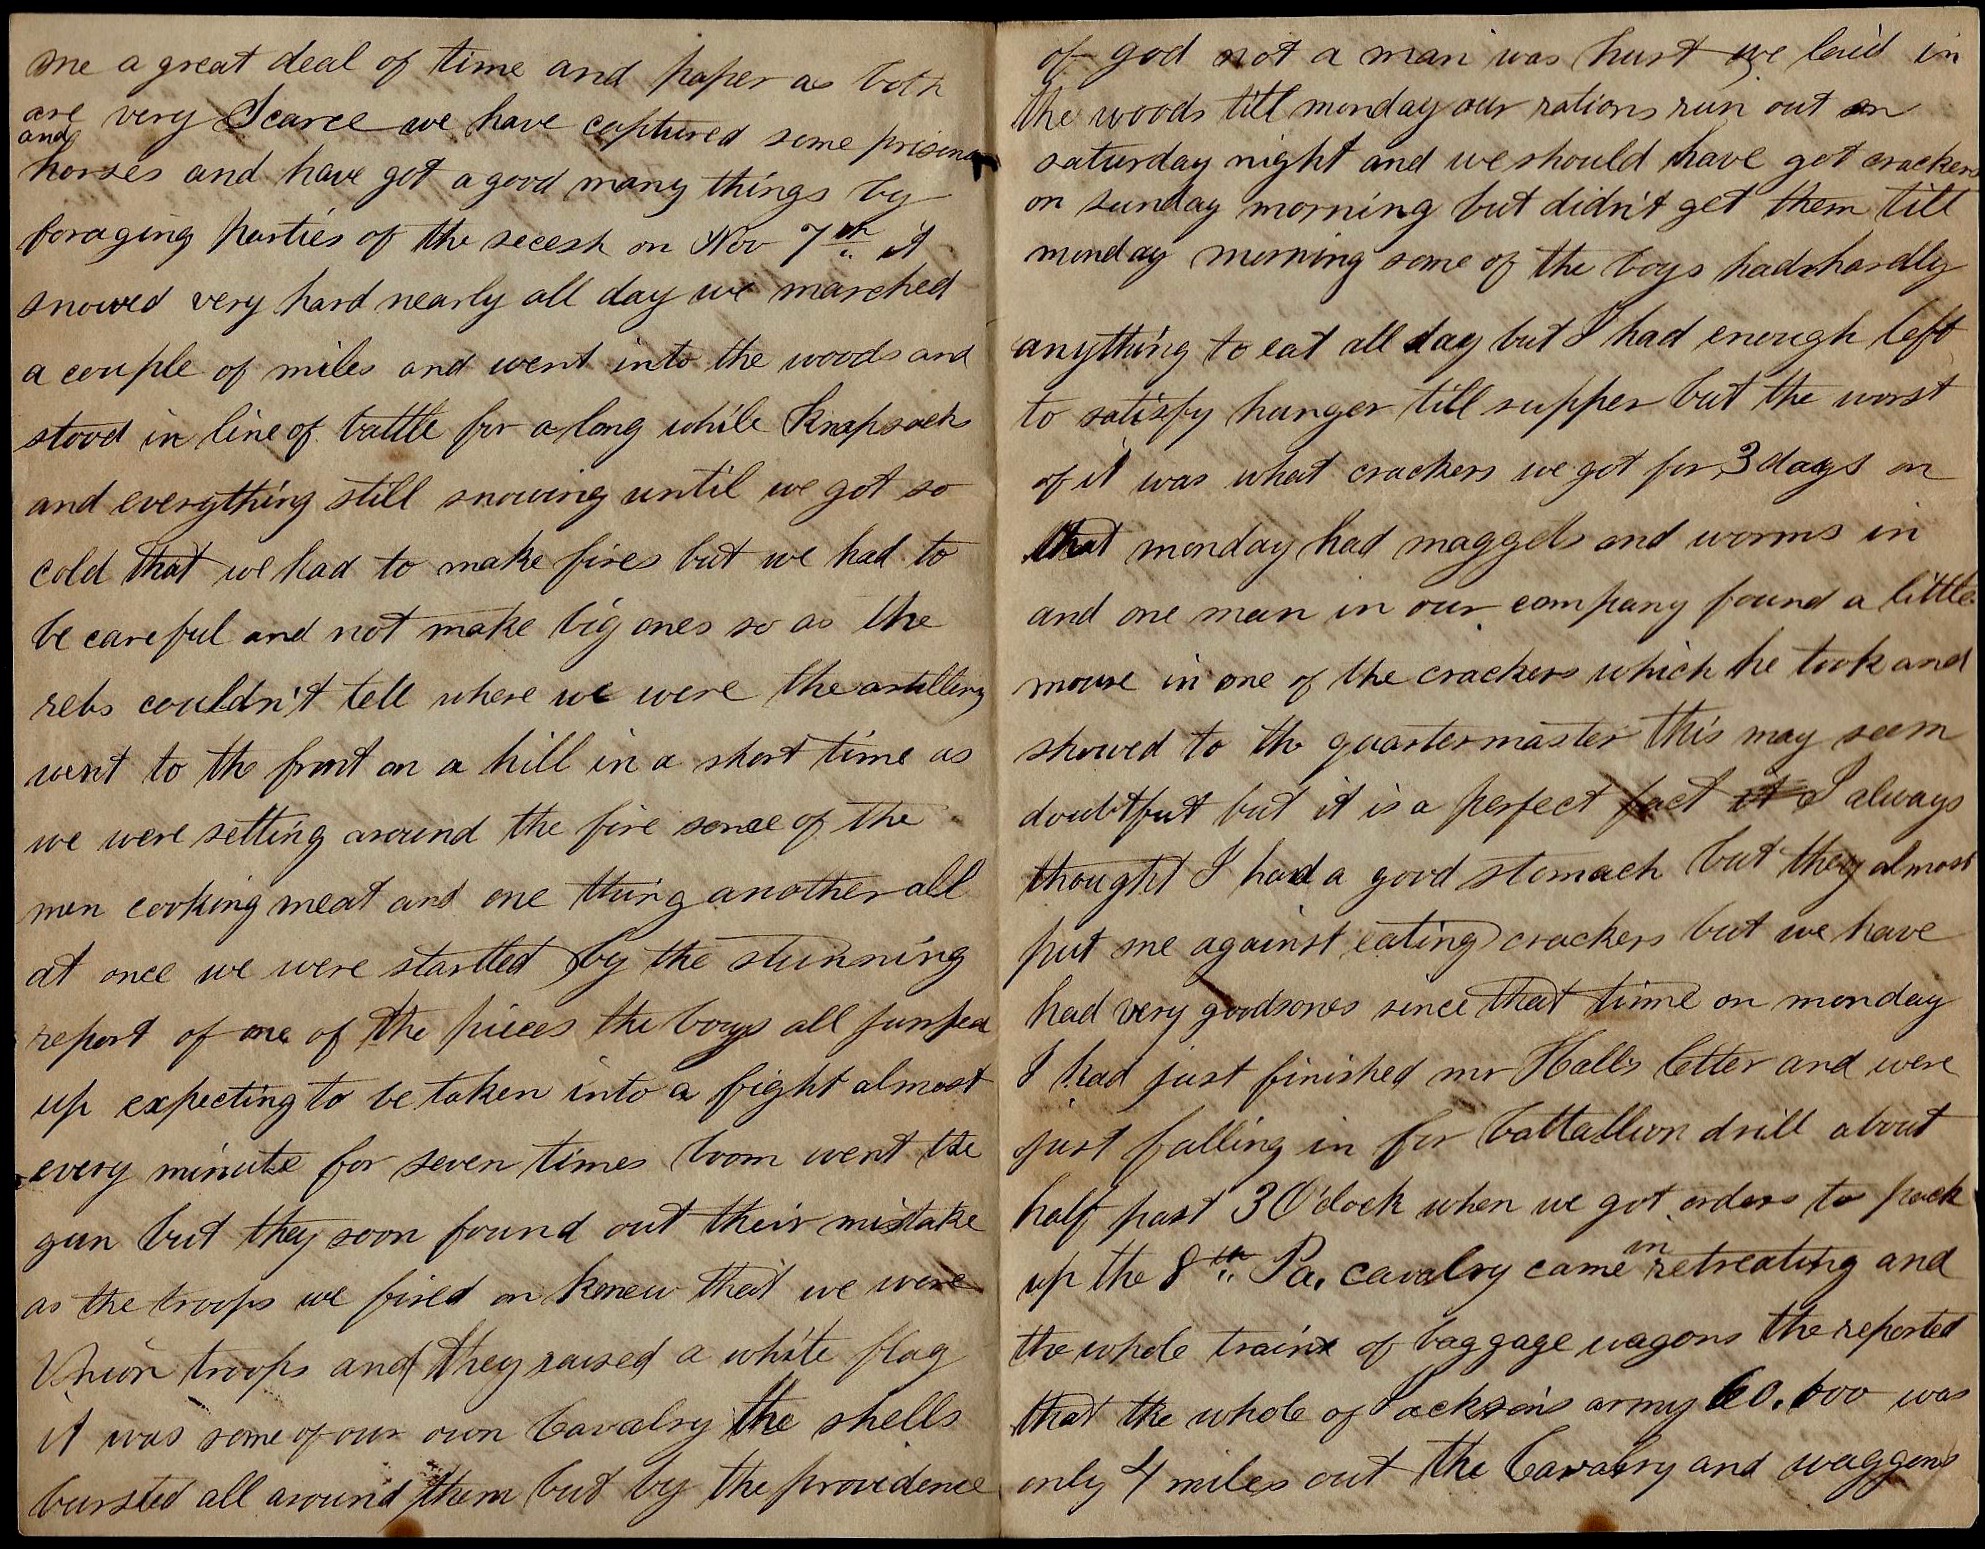 me a great deal of time and paper as both
are very Scarce we have captured some prisoner
and
horses and have got a good many things by
foraging parties of the secesh on Nov 7th it
snowed very hard nearly all day we marched
a couple of miles and went into the woods and
stood in line of battle for a long while Knapsacks
and everything still snowing until we got so
cold that we had to make fires but we had to
be careful and not make big ones so as the
rebs couldn't tell where we were the artillery
went to the front on a hill in a short time as
we were setting around the fire some of the
men cooking meat and one thing another all
at once we were startled by the stunning
report of one of the pieces the boys all jumped
up expecting to be taken into a fight almost
every minute for seven times boom went the
gun but they soon found out their mistake
as the troops we fired on knew that we were
Union troops and they raised a white flag
it was some of our own Cavalry the shells
bursted all around them but by the providence
of god not a man was hurt we laid in
the woods till monday our rations run out on
saturday night and we should have got crackers
on sunday morning but didn't get them till
monday morning some of the boys had hardly
anything to eat all day but I had enough left
to satisfy hunger till supper but the worst
of it was what crackers we got for 3 days on
that monday had maggets and worms in
and one man in our company found a little
mouse in one of the crackers which he took and
showed to the quartermaster this may seem
doubtfut but it is a perfect fact it I always
thought I had a good stomach but they almost
put me against eating crackers but we have
had very good sones since that time on monday
I had just finished mr Halls letter and were
just falling in for battallion drill about
half past 3 O'clock when we got orders to pack
up the 8th Pa. cavalry came in retreating and
the whole train of baggage wagons the reported
that the whole of Jacksons army 60.000 was
only 4 miles out the Cavalry and waggons